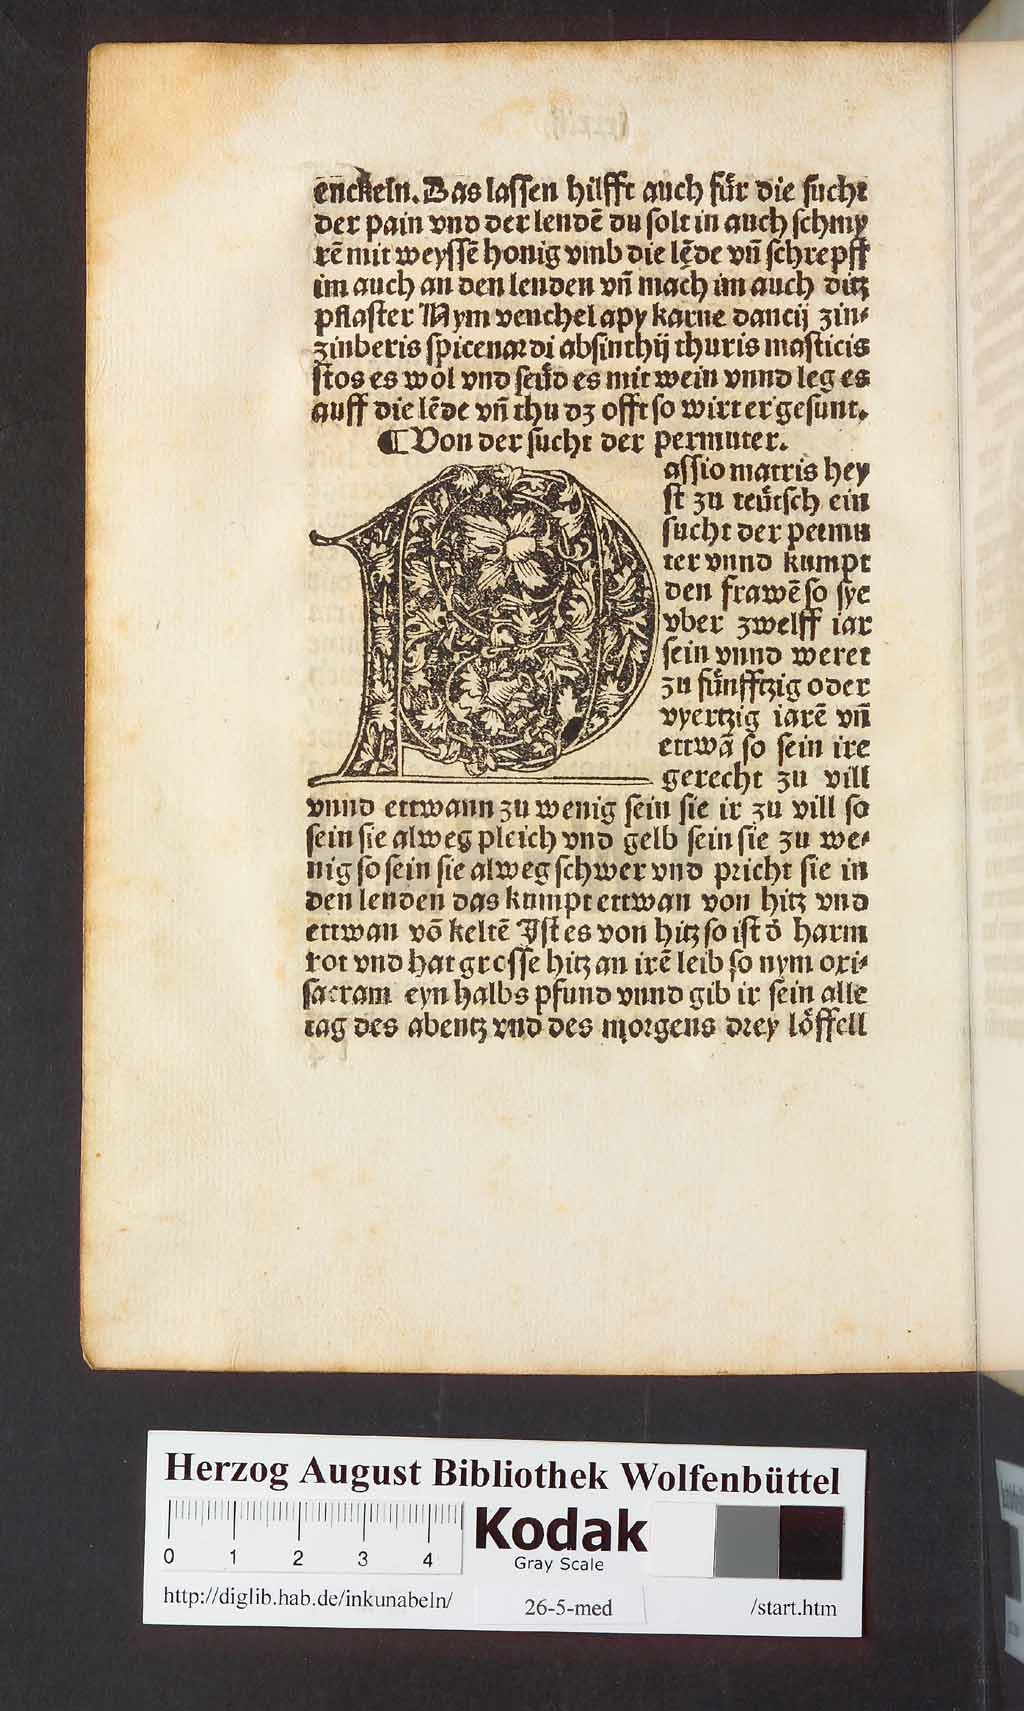 enckeln. Das lassen hilfft auch fúr die sucht
der pain vnd der lendē du solt in auch schmy
rē mit weyssē honig vmb die lēde vn̄ schrepff
im auch an den lenden vn̄ mach im auch ditz
pflaster Nym venchel apy karue dancij zin⸗
zinberis spicenardi absinthij thuris masticis
stos es wol vnd seúd es mit wein vnnd leg es
auff die lēde vn̄ thu dz offt so wirt er gesunt.
¶ Von der sucht der permuter.
Passio matris hey
st zu teútsch ein
sucht der permu
ter vnnd kumpt
den frawē so sye
vber zwelff iar
sein vnnd weret
zu fúnfftzig oder
vyertzig iarē vn̄
ettwā so sein ire
gerecht zu vill
vnnd ettwann zu wenig sein sie ir zu vill so
sein sie alweg pleich vnd gelb sein sie zu we⸗
nig so sein sie alweg schwer vnd pricht sie in
den lenden das kumpt ettwan von hitz vnd
ettwan vō keltē Ist es von hitz so ist d̄ harm
rot vnd hat grosse hitz an irē leib so nym oxi⸗
sacram eyn halbs pfund vnnd gib ir sein alle
tag des abentz vnd des morgens drey lóffell
Herzog August Bibliothek Wolfenbüttel
0 1 2 3 4
Kodak
Gray Scale
http://diglib.hab.de/inkunabeln/ 26-5-med /start.htm